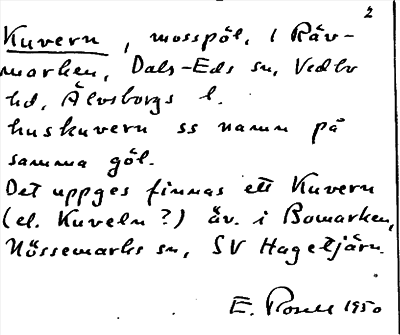 2
Kuvern, mosspöl, i Räv-
marken, Dals-Eds sn, Vedbo
hd, Älvsborgs l.
huskuvern ss namn på
samma göl.
Det uppges finnas ett Kuvern
(el. Kuveln ?) äv. i Bomarken,
Nössemarks sn, SV Hagetjärn.
E. Rosell 1950